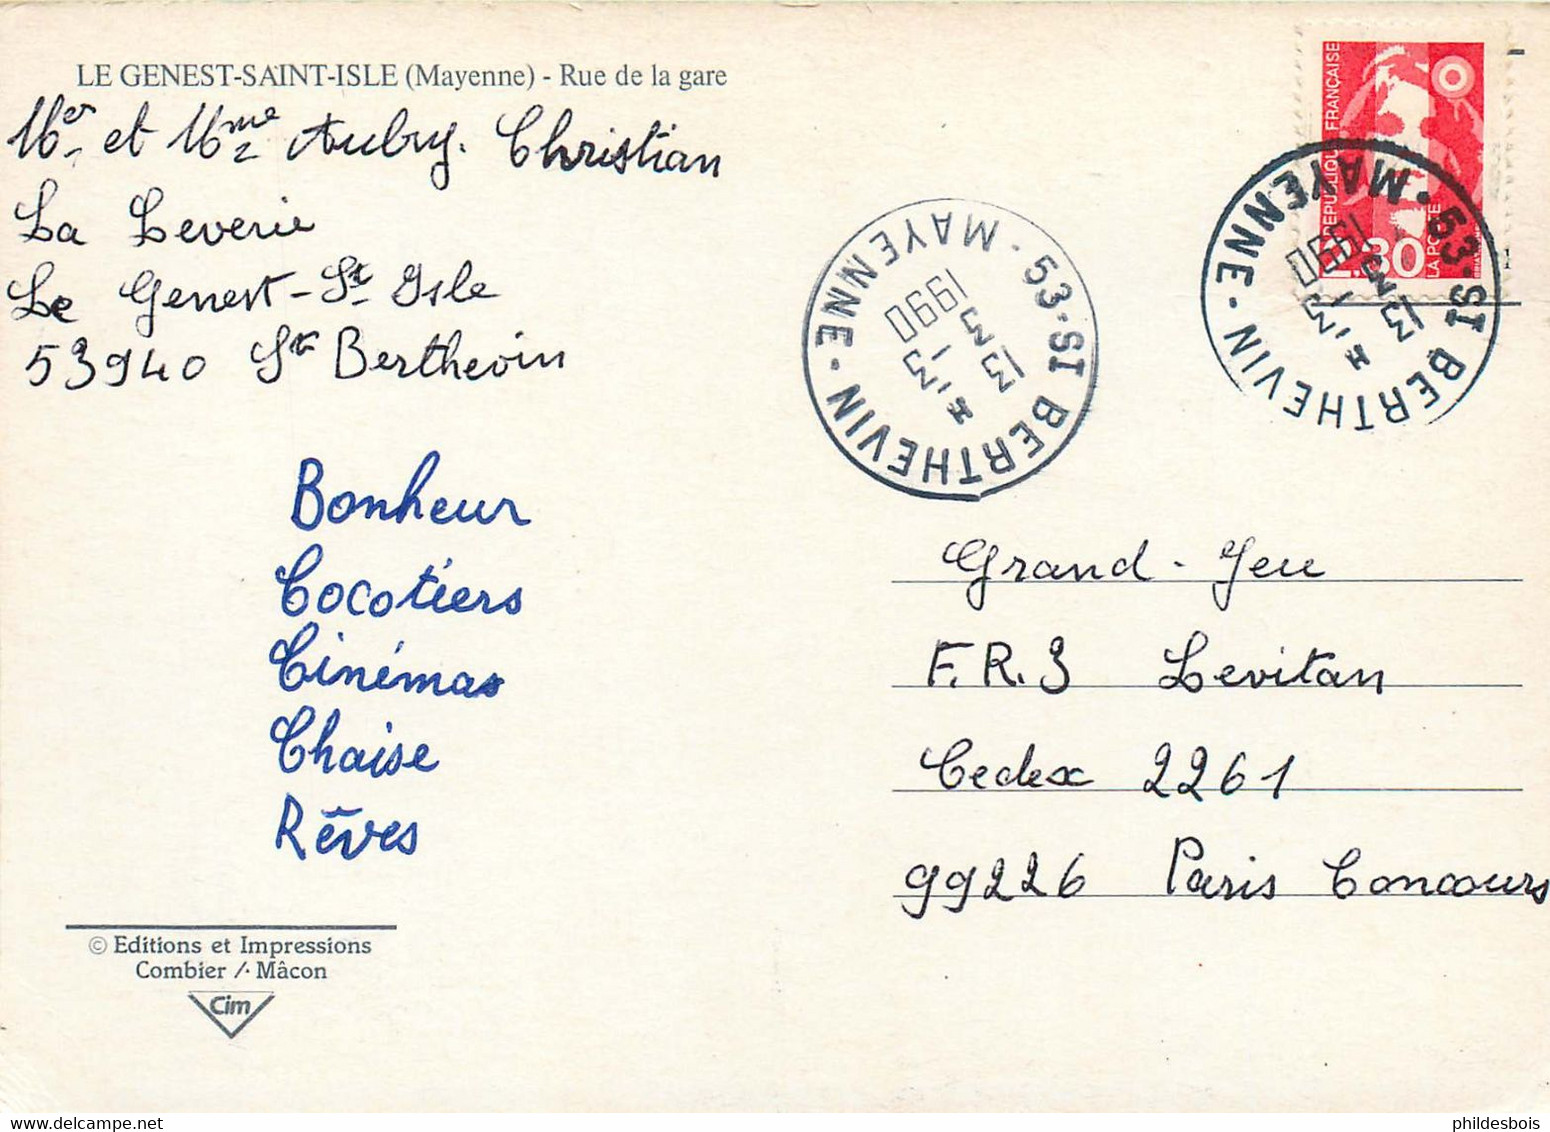 LE GENEST-SAINT-ISLE (Mayenne) - Rue de la gare
Mer et Mme Aubry. Christian
La Leverie
Le Genest-St Isle
53940 St Berthevin
Bonheur
Cocotiers
Cinémas
Chaise
Rêves
© Editions et Impressions
Combier / Mâcon
Cim
53-ST BERTHEVIN - MAYENNE -
1990
RÉPUBLIQUE FRANÇAISE
2.30
LA POSTE
53-ST BERTHEVIN - MAYENNE -
1990
Grand-Jeu
F.R.3 Levitan
Cedex 2261
99226 Paris Concours
phildesbois